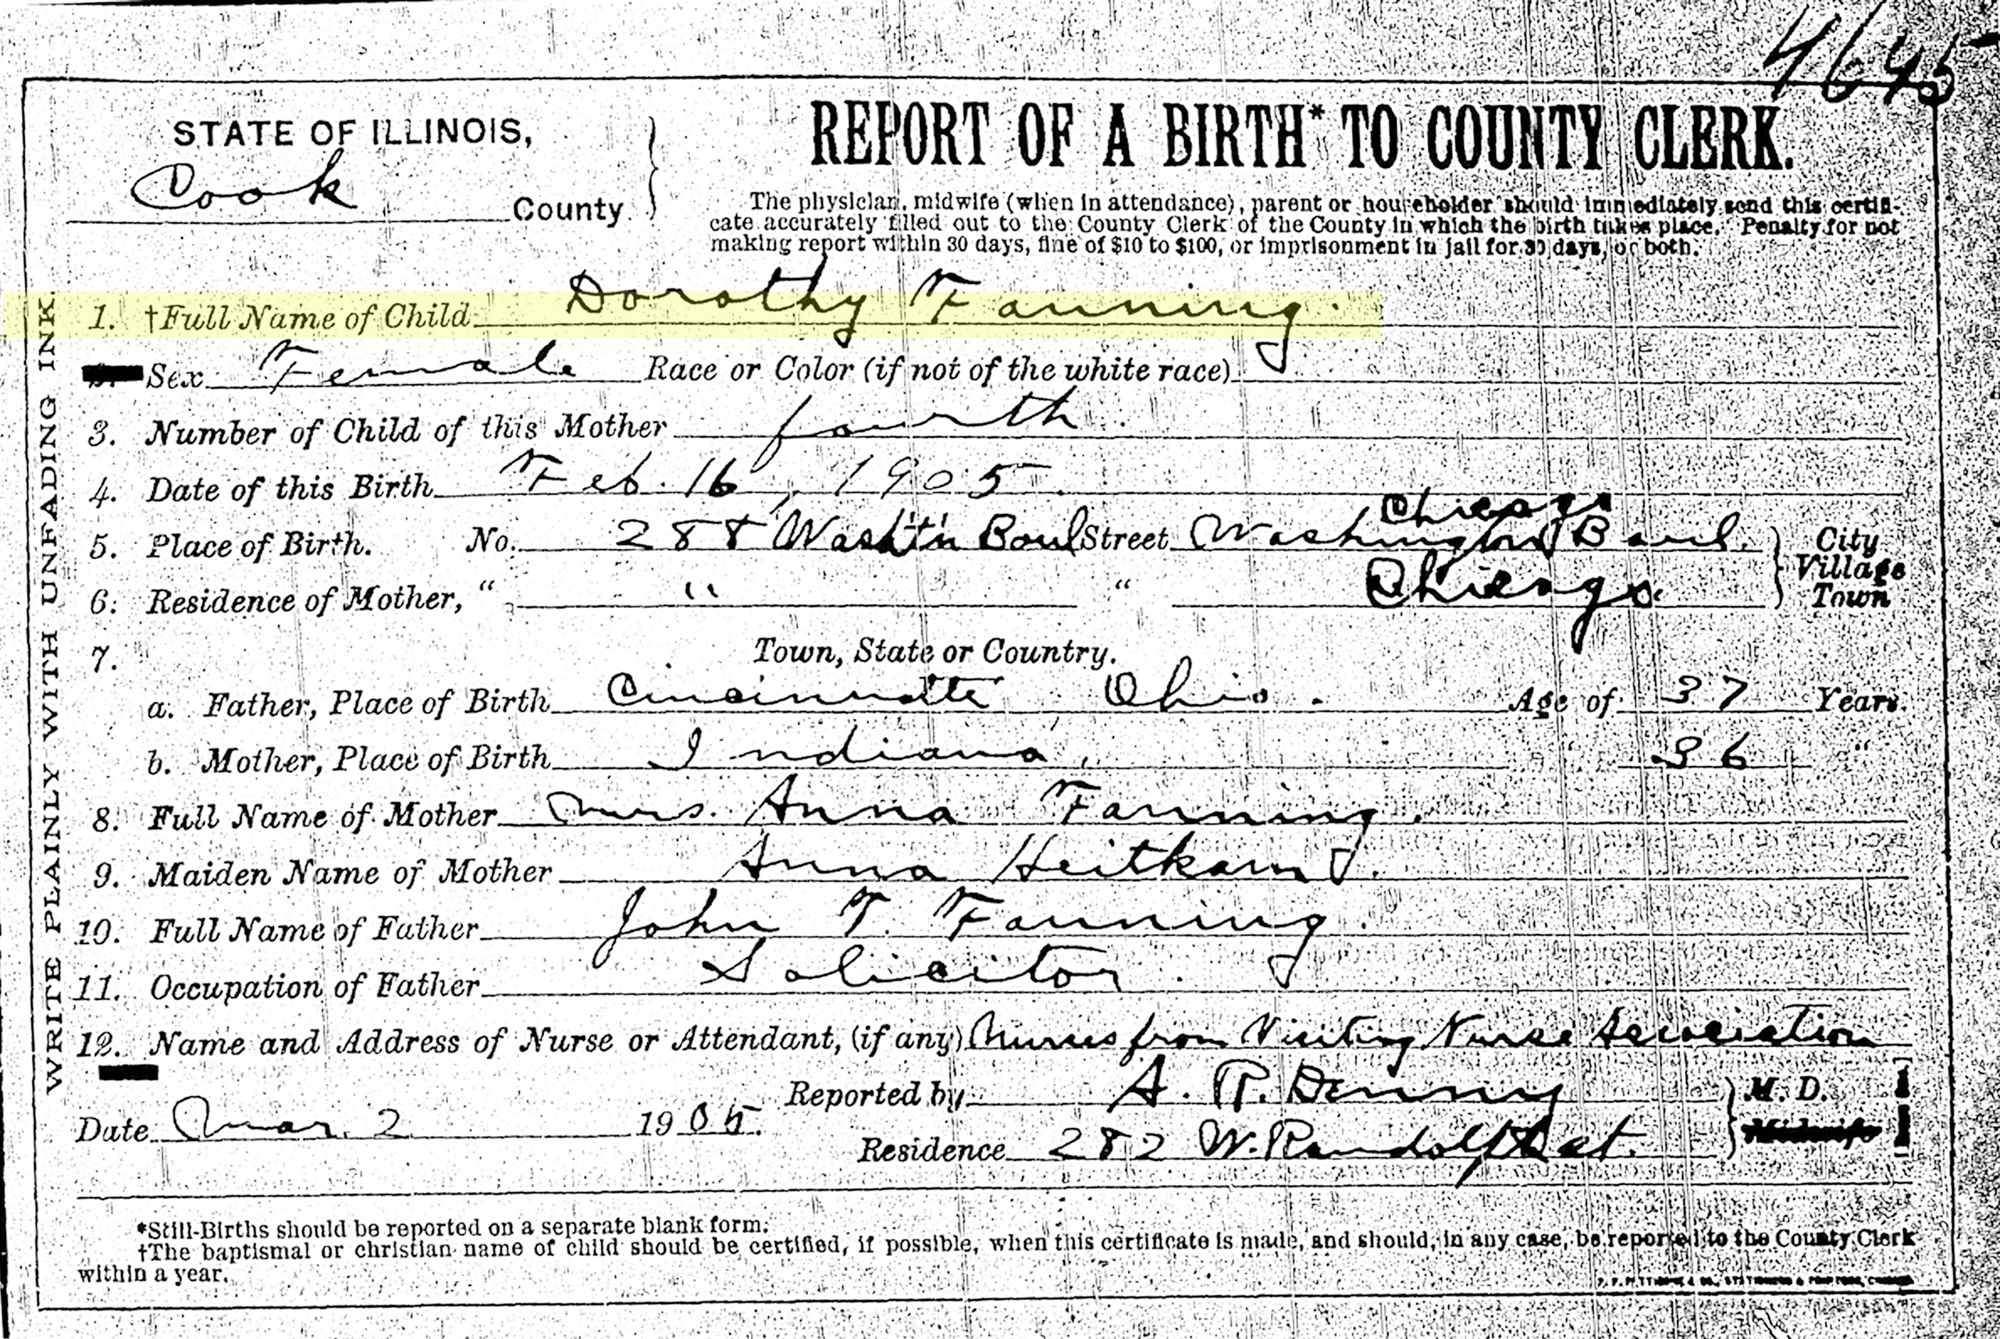 4645
STATE OF ILLINOIS,
Cook County
REPORT OF A BIRTH* TO COUNTY CLERK.
The physician, midwife (when in attendance), parent or householder should immediately send this certifi-
cate accurately filled out to the County Clerk of the County in which the birth takes place. Penalty for not
making report within 30 days, fine of $10 to $100, or imprisonment in jail for 30 days, or both.
WRITE PLAINLY WITH UNFADING INK.
1. †Full Name of Child Dorothy Fanning.
Sex Female Race or Color (if not of the white race)
3. Number of Child of this Mother fourth.
4. Date of this Birth Feb. 16, 1905.
Chicago
5. Place of Birth. No. 288 Wash't'n Boul Street Washington Boul. City
Village
6. Residence of Mother, " " " Chicago. Town
7. Town, State or Country.
a. Father, Place of Birth Cincinnatti Ohio. Age of 37 Years.
b. Mother, Place of Birth Indiana, " 36 "
8. Full Name of Mother Mrs. Anna Fanning.
9. Maiden Name of Mother Anna Heitkamp.
10. Full Name of Father John T. Fanning.
11. Occupation of Father Solicitor.
12. Name and Address of Nurse or Attendant, (if any) Nurses from Visiting Nurse Association
Reported by A. P. Denny M. D.
Date Mar. 2 1905. Midwife
Residence 282 W. Randolph st.
*Still-Births should be reported on a separate blank form.
†The baptismal or christian name of child should be certified, if possible, when this certificate is made, and should, in any case, be reported to the County Clerk
within a year.